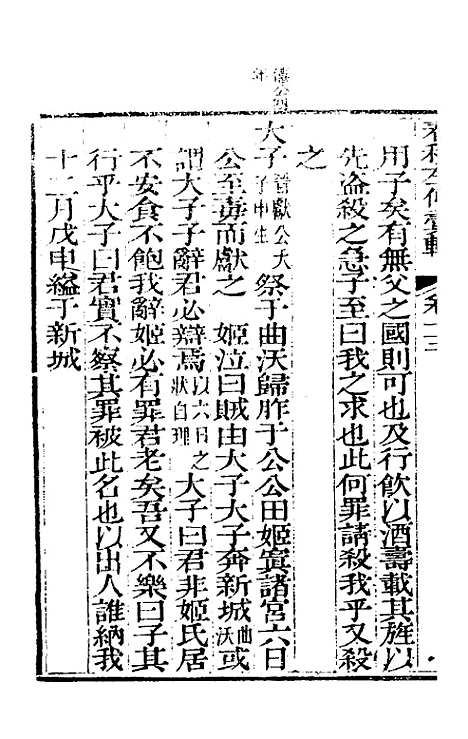 春秋左傳
用子矣有無父之國則可也及行飲以酒壽載其旌以
先盜殺之急子至曰我之求也此何罪請殺我乎又殺
之
僖公四年
大子晉獻公大子申生祭于曲沃歸胙于公公田姬寘諸宮六日
公至毒而獻之 姬泣曰賊由大子大子奔新城曲沃或
謂大子子辭君必辯焉以六日之狀自理大子曰君非姬氏居
不安食不飽我辭姬必有罪君老矣吾又不樂曰子其
行乎大子曰君實不察其罪被此名也以出人誰納我
十二月戊申縊于新城